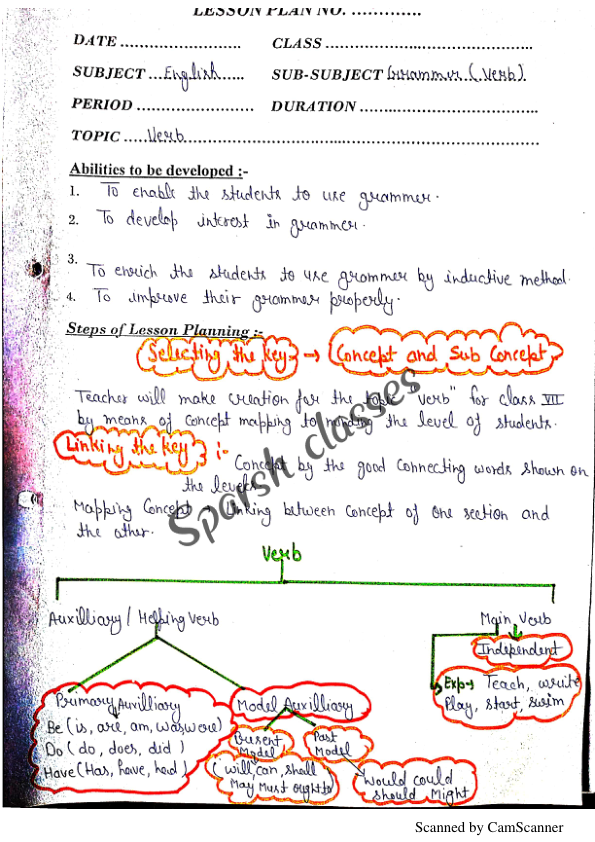 LESSON PLAN NO. .............
DATE ........................ CLASS ........................................
SUBJECT ...English...... SUB-SUBJECT Grammer (Verb)
PERIOD ...................... DURATION ..................................
TOPIC .....Verb.....................................................................
Abilities to be developed :-
1. To enable the students to use grammer.
2. To develop interest in grammer.
3.
To enrich the students to use grammer by inductive method.
4. To improve their grammer properly.
Steps of Lesson Planning :-
Selecting the key → Concept and Sub Concept
Teacher will make creation for the topic "verb" for class VII
by means of concept mapping to the level of students.
Linking the key :-
Concept by the good connecting words shown on
the levels
Mapping Concept → Linking between concept of one section and
the other.
Sparsh classes
Verb
Auxilliary / Helping verb Main Verb
Independent
Exp→ Teach, write
Play, start, swim
Primary Auxilliary Model Auxilliary
Be (is, are, am, was, were)
Do (do, does, did)
Have (Has, have, had)
Present Model Past Model
(will, can, shall
May Must ought to)
Would could
should Might
Scanned by CamScanner